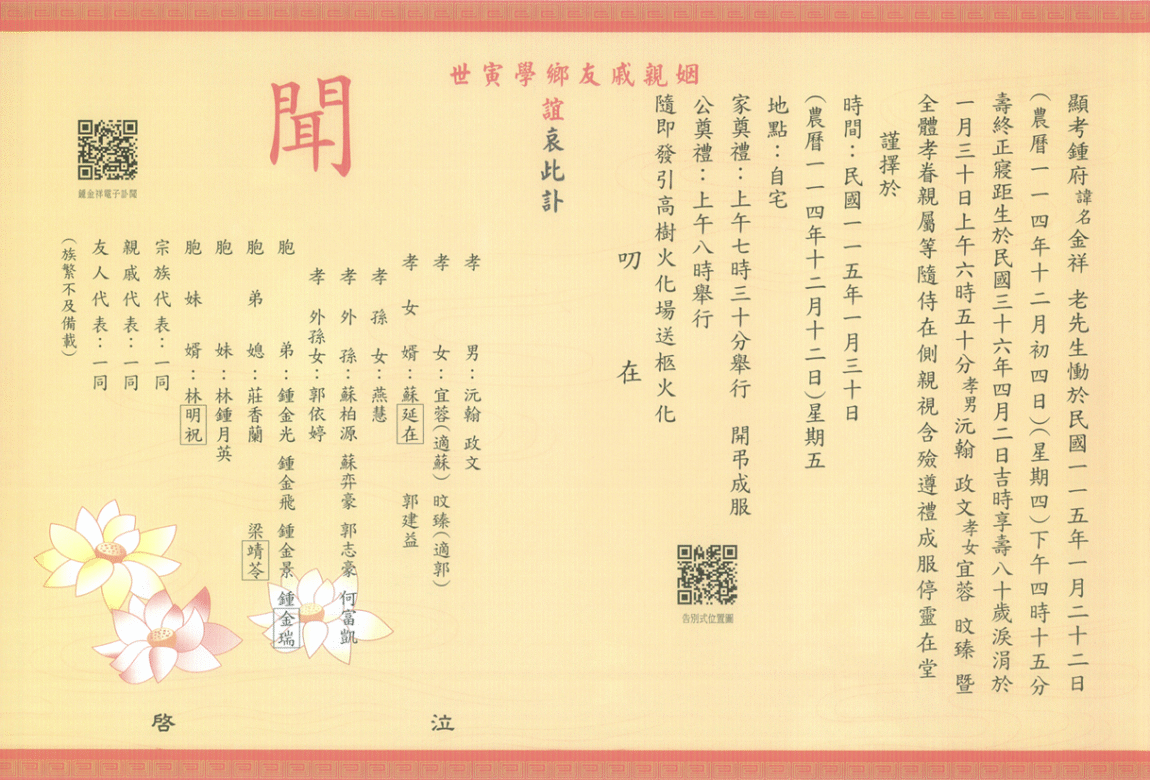 顯考鍾府諱名金祥 老先生慟於民國一一五年一月二十二日
(農曆一一四年十二月初四日)(星期四)下午四時十五分
壽終正寢距生於民國三十六年四月二日吉時享壽八十歲淚涓於
一月三十日上午六時五十分孝男沅翰 政文孝女宜蓉 旼臻 暨
全體孝眷親屬等隨侍在側親視含殮遵禮成服停靈在堂
謹擇於
時間：民國一一五年一月三十日
(農曆一一四年十二月十二日)星期五
地點：自宅
家奠禮：上午七時三十分舉行 開弔成服
公奠禮：上午八時舉行
隨即發引高樹火化場送柩火化
告別式位置圖
叨 在
姻親戚友鄉學寅世
誼哀此訃
聞
孝男：沅翰 政文
孝女：宜蓉(適蘇) 旼臻(適郭)
孝女婿：蘇延在 郭建益
孝孫女：燕慧
孝外孫：蘇柏源 蘇弈豪 郭志豪 何富凱
孝外孫女：郭依婷
胞弟：鍾金光 鍾金飛 鍾金景 鍾金瑞
胞弟媳：莊香蘭 梁靖苓
胞妹：林鍾月英
胞妹婿：林明祝
宗族代表：一同
親戚代表：一同
友人代表：一同
(族繁不及備載)
泣 啓
鍾金祥電子訃聞